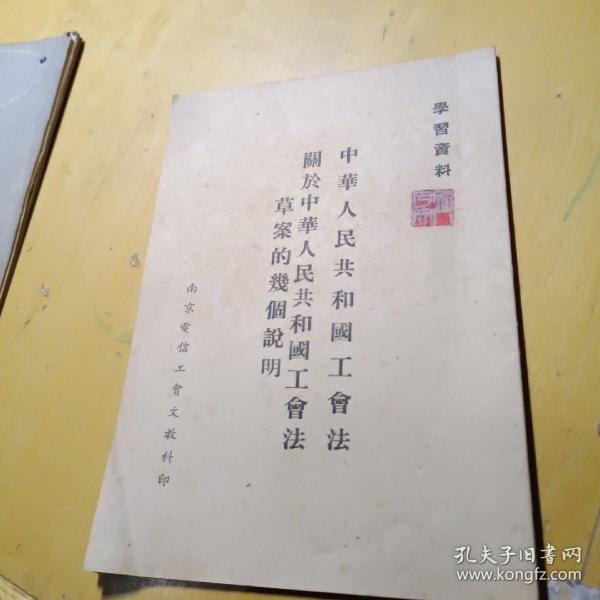 學習資料
中華人民共和國工會法
關於中華人民共和國工會法
草案的幾個說明
南京電信工會文教科印
孔夫子旧书网
www.kongfz.com